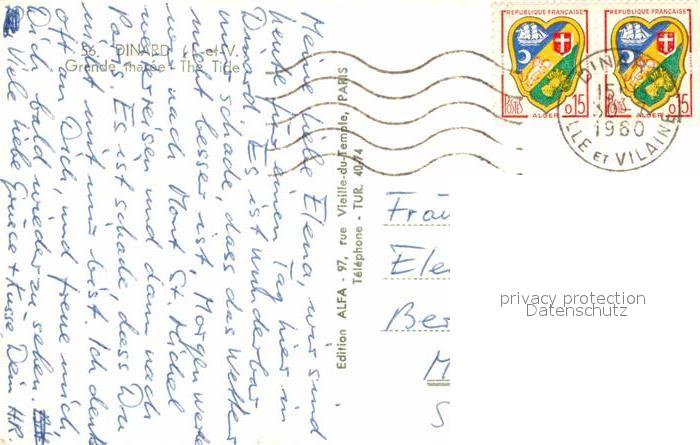 56. DINARD (I.-et-V.
Grande marée - The Tide
Meine liebe Elena, wir sind
heute für einen Tag hier in
Dinard. Es ist wunderbar
nur schade, dass das Wetter
nicht besser ist. Morgen
wir nach Mont St. Michel
weiterreisen und dann nach
Paris. Es ist schade, dass Du
nicht mit uns bist. Ich denke
oft an Dich, und freue mich,
Dich bald wieder zu sehen.
Viele liebe Grüsse + Küsse, Dein
Edition ALFA - 97, rue Vieille-du-Temple, PARIS
Téléphone - TUR. 40-74
REPUBLIQUE FRANÇAISE
POSTES 0,15
ALGER
REPUBLIQUE FRANÇAISE
POSTES 0,15
ALGER
DINARD
15
1960
ILLE ET VILAINE
Frau
Ele
Be
M
S
privacy protection
Datenschutz